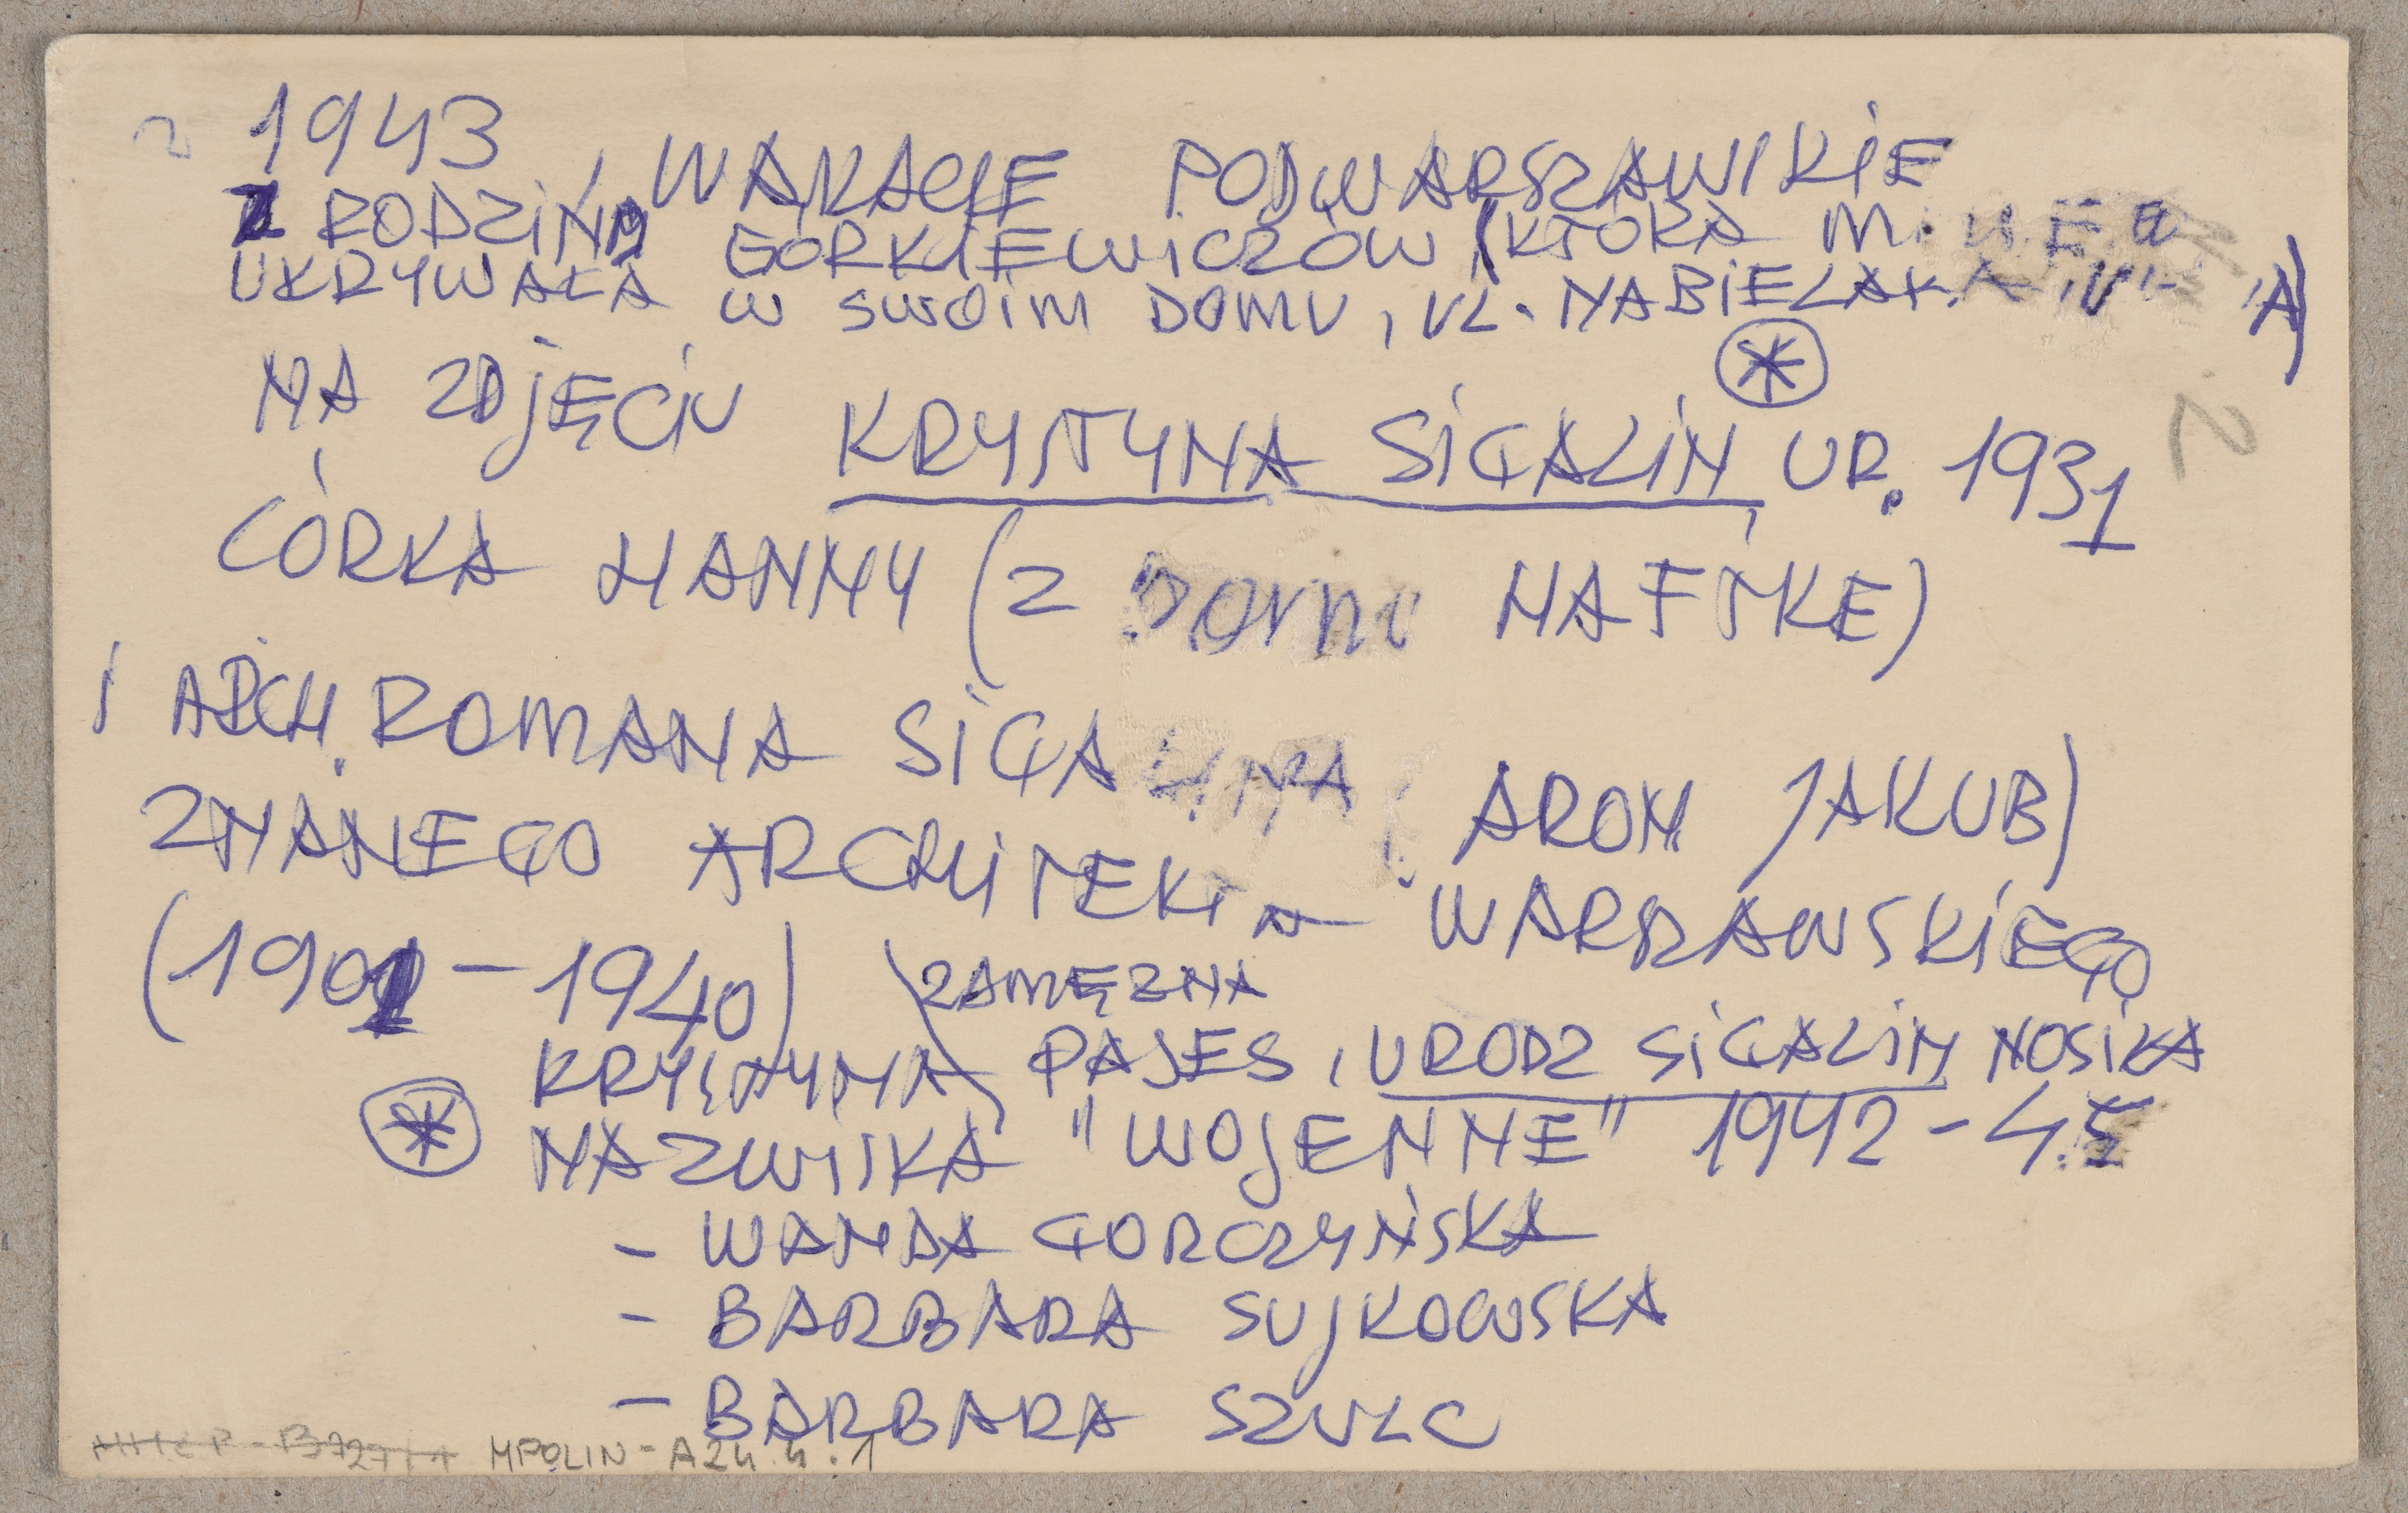 2
1943, WAKACJE PODWARSZAWSKIE
Z RODZINĄ GÓRKIEWICZÓW (KTÓRA M.
UKRYWAŁA W SWOIM DOMU, UL. NABIELAKA
NA ZDJĘCIU KRYSTYNA SIGALIN UR. 1931
2
CÓRKA HANNY (Z DOMU HAFTKE)
I ARCH. ROMANA SIGALINA (ARON JAKUB)
ZNANEGO ARCHITEKTA WARSZAWSKIEGO
(1901 – 1940)
ZAMĘZNA
* KRYSTYNA PAJES, URODZ SIGALIN NOSIŁA
NAZWISKA "WOJENNE" 1942 – 45
– WANDA GORCZYŃSKA
– BARBARA SUJKOWSKA
– BARBARA SZULC
MPOLIN - A24.4.1